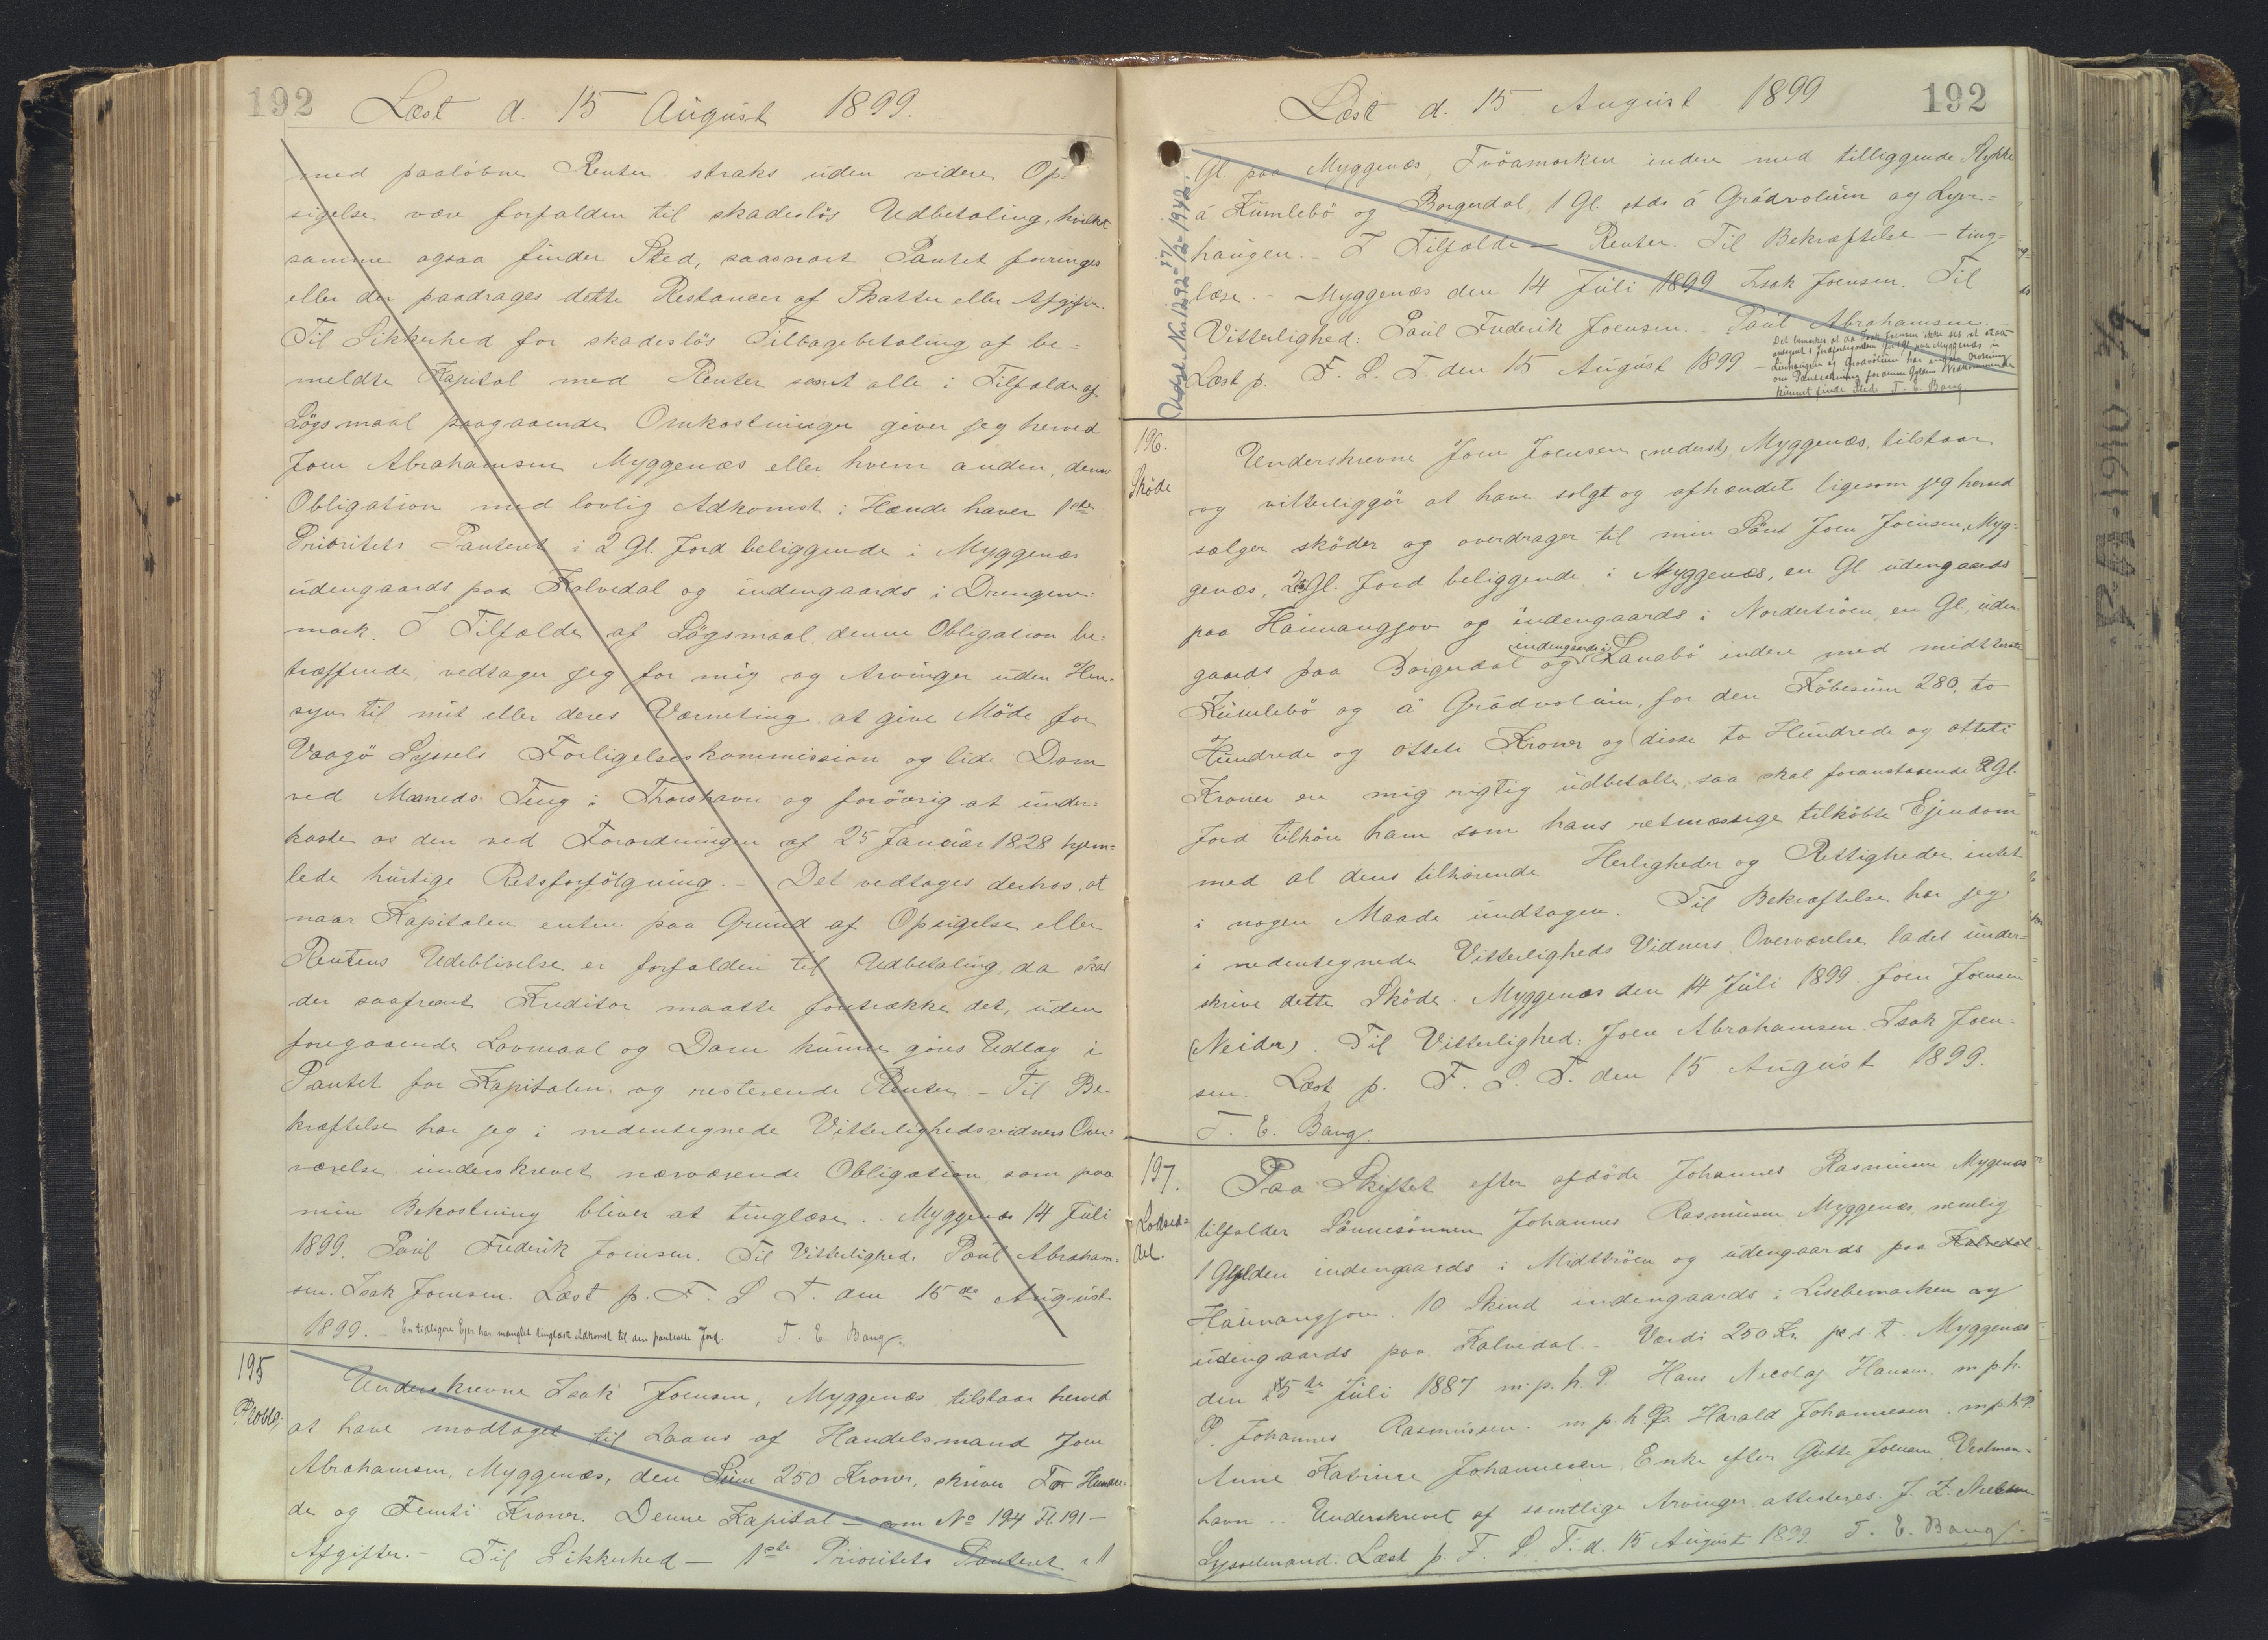 192
Læst d. 15 August 1899.
med paaløbne Renter straks uden videre Op-
sigelse være forfalden til skadesløs Udbetaling, hvilket
samme ogsaa finder Sted, saasnart Pantet forringes
eller der paadrages dette Restancer af Skatter eller Afgifter.
Til Sikkerhed for skadesløs Tilbagebetaling af be-
meldte Kapital med Renter samt alle i Tilfælde af
Løgsmaal paagaaende Omkostninger giver jeg herved
Joen Abrahamsen Myggenæs eller hvem anden, denne
Obligation med lovlig Adkomst i Hænde haver 1ste
Prioritets Panteret i 2 Gl. Jord beliggende i Myggenæs
udengaards paa Kalvedal og indengaards i Drengene-
mark. I Tilfælde af Løgsmaal denne Obligation be-
træffende, vedtager jeg for mig og Arvinger uden Hen-
syn til mit eller deres Værneting at give Møde for
Vaagø Syssels Forligelseskommission og lide Dom
ved Maaneds Ting i Thorshavn og forøvrig at under-
kaste os den ved Forordningen af 25 Januar 1828 hjem-
lede hurtige Retsforfølgning. - Det vedtages derhos, at
naar Kapitalen enten paa Grund af Opsigelse eller
Rentens Udeblivelse er forfalden til Udbetaling, da skal
der saafremt Kreditor maatte foretrække det, uden
foregaaende Lovmaal og Dom kunne gøres Udlæg i
Pantet for Kapitalen og resterende Renter. - Til Be-
kræftelse har jeg i nedentegnede Vitterlighedsvidners Over-
værelse underskrevet nærværende Obligation som paa
min Bekostning bliver at tinglæse. . Myggenæs 14 Juli
1899. Paul Frederik Joensen. Til Vitterlighed: Paul Abraham-
sen. Isak Joensen. Læst p. F. S. T. den 15de August
1899. - En tidligere Ejer har manglet tinglæst Adkomst til den pantsatte Jord. T. E. Bang.
195
P. Oblg.
Underskrevne Isak Joensen, Myggenæs tilstaar herved
at have modtaget til Laans af Handelsmand Joen
Abrahamsen, Myggenæs, den Sum 250 Kroner, skriver To Hundre-
de og Femti Kroner. Denne Kapital - som No 194 Fl. 191 -
Afgifter. - Til Sikkerhed - 1ste Prioritets Panteret i 1
Læst d. 15. August 1899
192
Gl. paa Myggenæs, Tvöamarken indere med tilliggende Stykke
á Kumlebø og Borgerdal, 1 Gl. stds á Grádvolum og Lyre-
haugen. - I Tilfælde - Renter. Til Bekræftelse - ting-
læse. - Myggenæs den 14 Juli 1899 Isak Joensen. Til
Vitterlighed: Paul Frederik Joensen. - Paul Abrahamsen.
Læst p. F. S. T. den 15 August 1899. -
Det bemærkes at da Isak Joensen ikke ses at staa
antegnet i Jordebogen for 1 Gl. paa Myggenæs in
Lyrehaugen og Gradvolum har ingen Anvisning
om Pantsætning for denne Gyldens Vedkommende
kunnet finde Sted T. E. Bang
Udsl. No. 1292 17/12 1942.
196.
Skøde
Underskrevne Joen Joensen (nederst) Myggenæs, tilstaar
og vitterliggør at have solgt og afhændet ligesom jeg herved
sælger skøder og overdrager til min Sønt Joen Joensen, Myg-
genæs, 2 Gl. Jord beliggende i Myggenæs, en Gl. udengaards
paa Haimangjov og indengaards i Nordertröen, en Gl. uden-
gaards paa Borgerdal og indengaards i Lanabø indere med midtterste
Kumlebø og á Grádvolum, for den Købesum 280, to
Hundrede og otteti Kroner og disse to Hundrede og otteti
Kroner er mig rigtig udbetalte, saa skal foranstaaende 2 Gl.
Jord tilhøre ham som hans retmæssige tilkøbte Ejendom
med al dens tilhørende Herligheder og Rettigheder intet
i nogen Maade undtagen. Til Bekræftelse har jeg
i nedentegnede Vitterligheds Vidners Overværelse ladet under-
skrive dette Skøde. Myggenæs den 14 Juli 1899. Joen Joensen
(Neider). Til Vitterlighed: Joen Abrahamsen. Isak Joen-
sen. Læst p. F. S. T. den 15 August 1899.
T. E. Bang.
197.
Lodsed-
del.
Paa Skiftet efter afdøde Johannes Rasmusen Mygenæs
tilfalder Sønnesønnen Johannes Rasmusen Myggenæs, nemlig
1 Gylden indengaards i Midttröen og udengaards paa Kalvedal
Haimangjov. 10 Skind indengaards i Lisebemarken og
udengaards paa Kalvedal. - Værdi 250 Kr. p. s. t. Myggenæs
den 15de Juli 1887 m. p. h. P. Hans Nicolaj Hansen. m. p. h.
P. Johannes Rasmussen. m. p. h. P. Harald Johannesen. m. p. h. P.
Anne Katrine Johannesen, Enke efter Gutte Joensen, Vestman-
havn. . Underskrevet af samtlige Arvinger attesteres. J. Z. Nielsen
Sysselmand. Læst p. F. S. T. d. 15 August 1899. T. E. Bang.